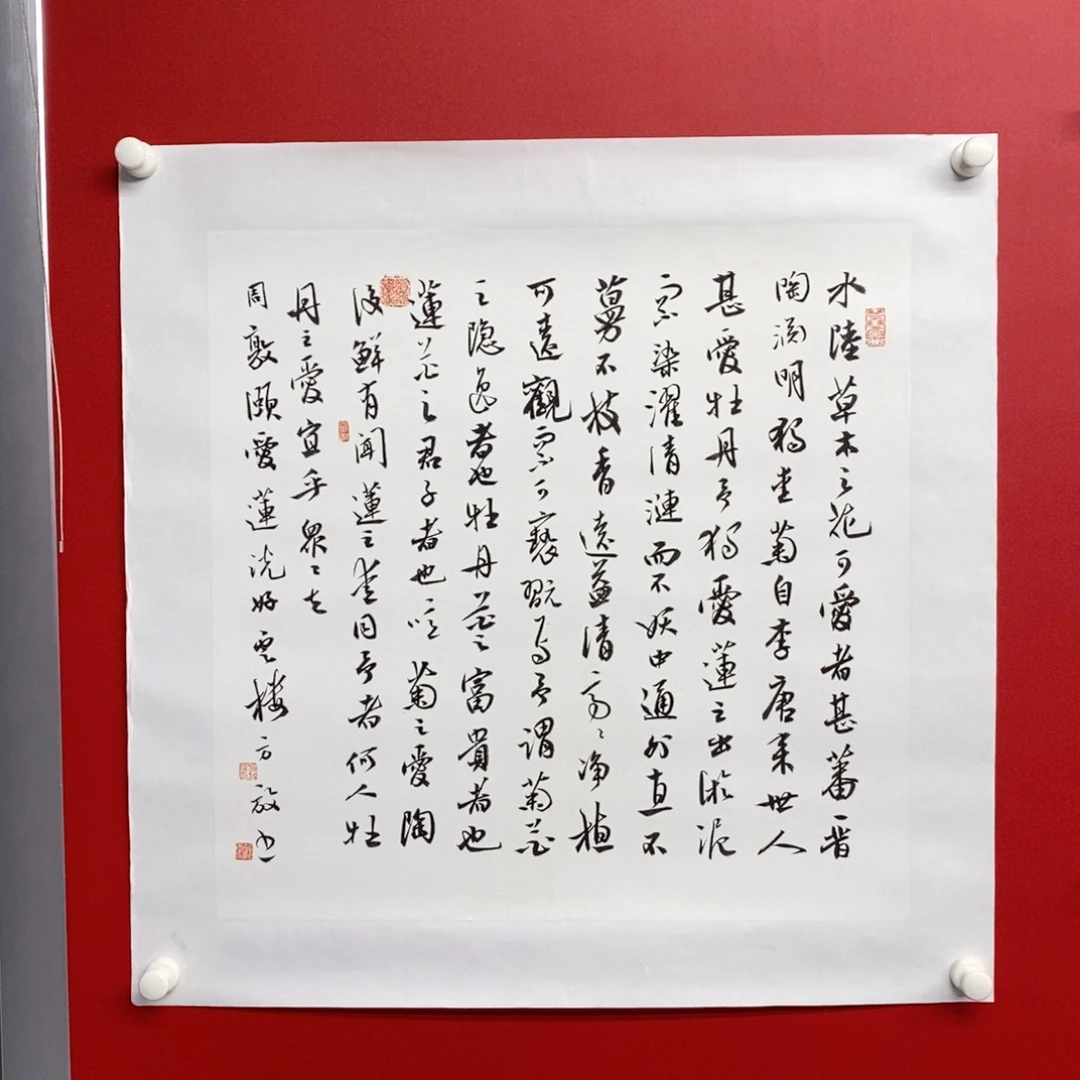 水陸草木之花可愛者甚蕃晋
陶淵明独爱菊自李唐来世人
甚愛牡丹予独愛蓮之出淤泥
而不染濯清漣而不妖中通外直不
蔓不枝香遠益清亭〻净植
可遠觀而不可褻翫焉予謂菊花
之隐逸者也牡丹花之富貴者也
蓮花之君子者也噫菊之愛陶
後鮮有聞蓮之爱同予者何人牡
丹之愛宜乎衆
周敦頤愛蓮説 楼方 書